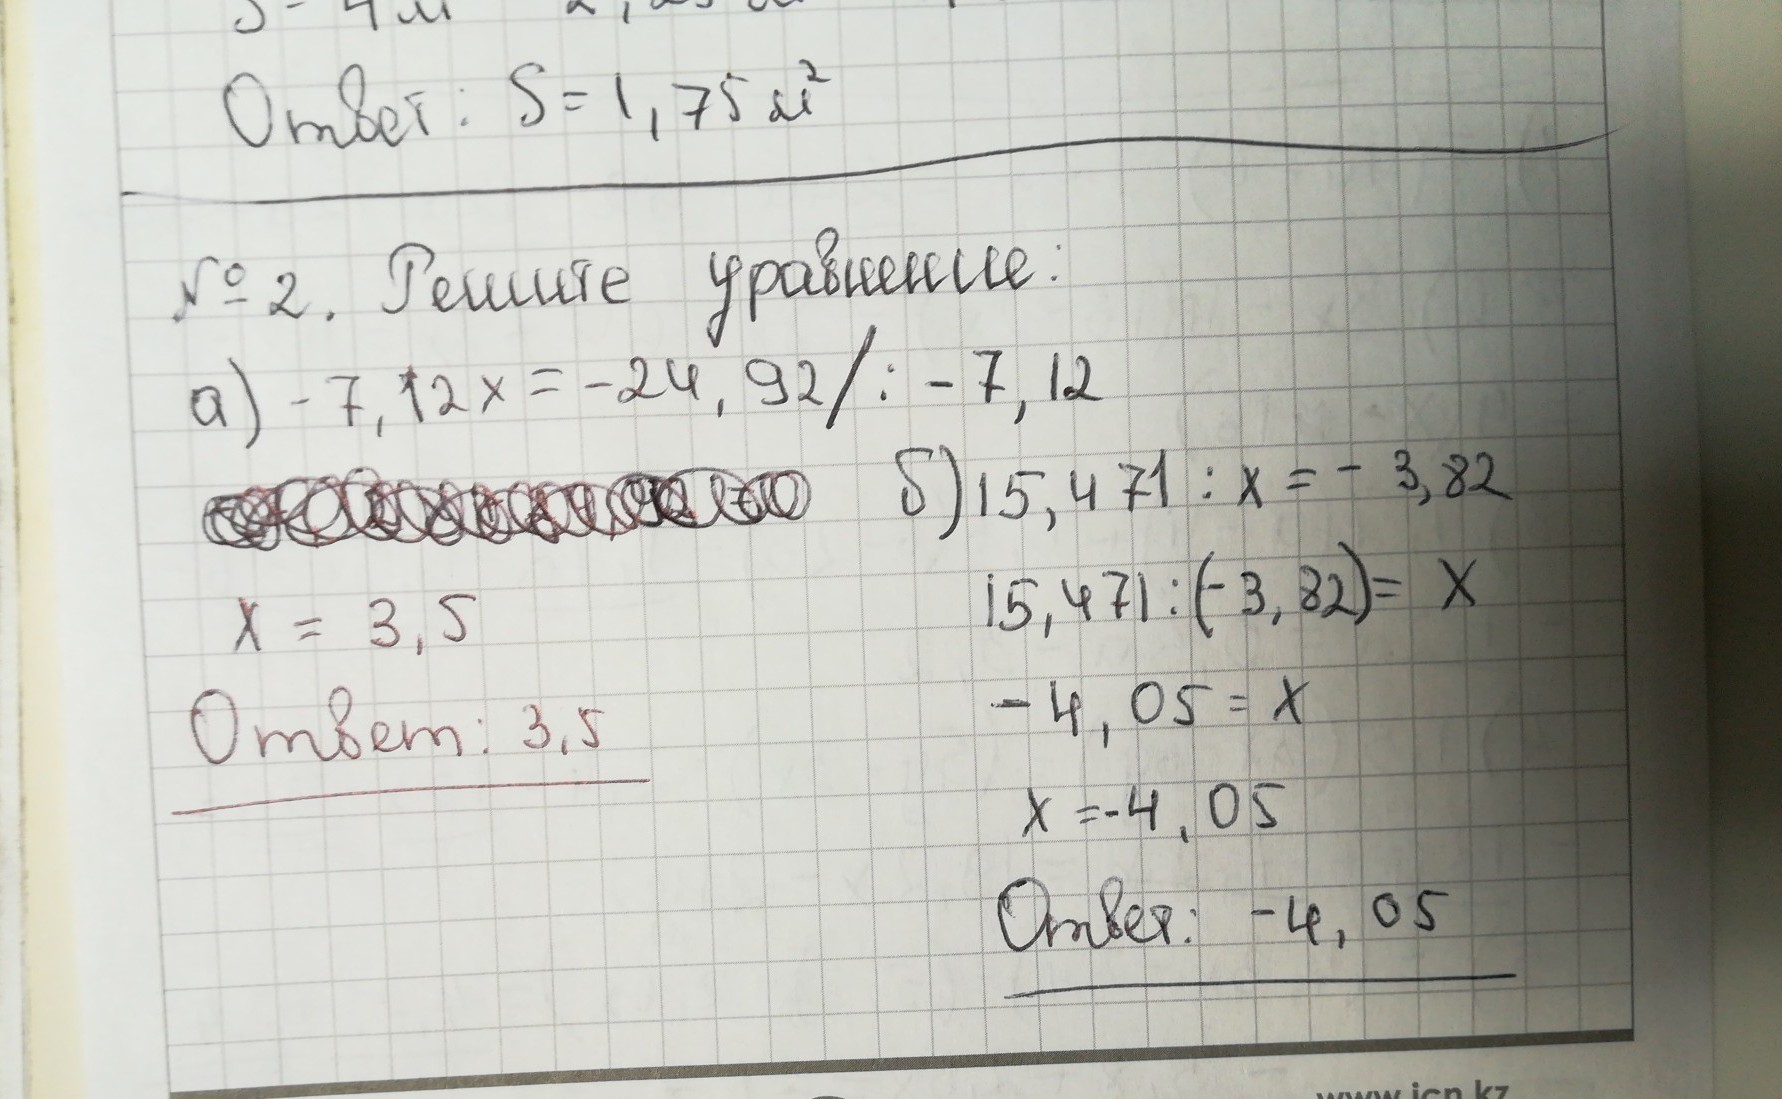 Ответ: S = 1,75 м²
№ 2. Решите уравнение:
а) -7,12x = -24,92 /: -7,12
x = 3,5
Ответ: 3,5
б) 15,471 : x = - 3,82
15,471 : (-3,82) = x
-4,05 = x
x = -4,05
Ответ: -4,05